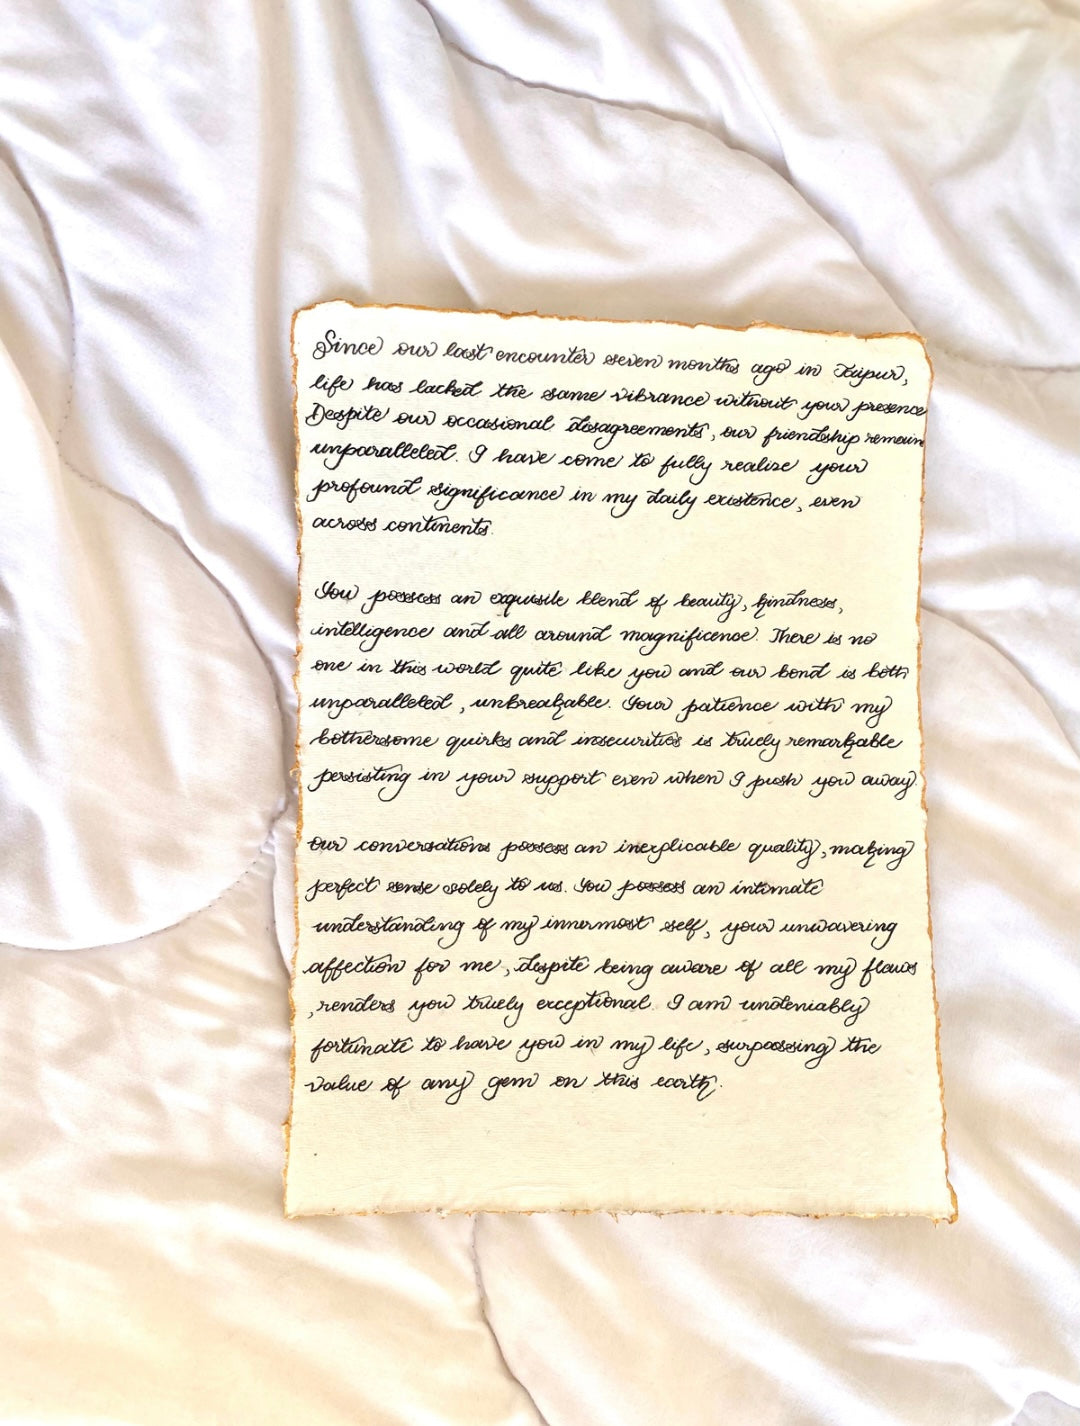 Since our last encounter seven months ago in Jaipur,
life has lacked the same vibrance without your presence
Despite our occasional disagreements, our friendship remain
unparalleled. I have come to fully realize your
profound significance in my daily existence, even
across continents.
You possess an exquisite blend of beauty, kindness,
intelligence and all around magnificence. There is no
one in this world quite like you and our bond is both
unparalleled, unbreakable. Your patience with my
bothersome quirks and insecurities is truely remarkable
persisting in your support even when I push you away.
Our conversations possess an inexplicable quality, making
perfect sense solely to us. You possess an intimate
understanding of my innermost self, your unwavering
affection for me, despite being aware of all my flaws
, renders you truely exceptional. I am undeniably
fortunate to have you in my life, surpassing the
value of any gem on this earth.